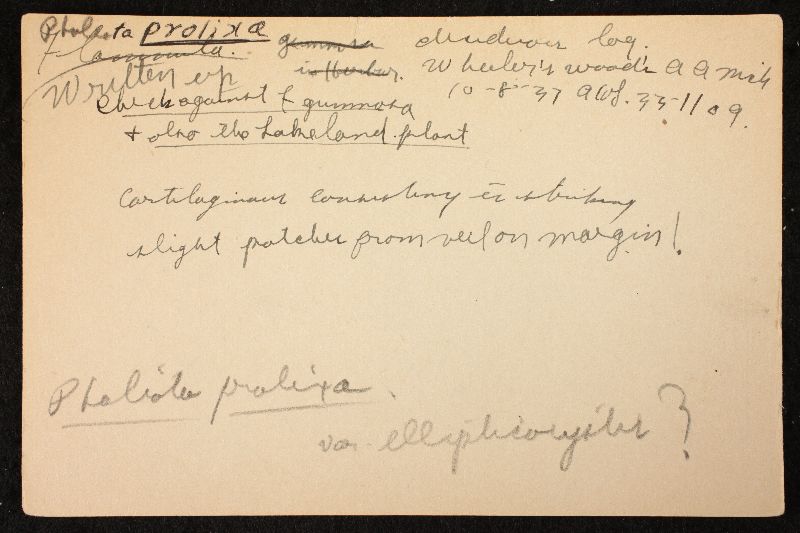 Pholiota prolixa
Flammula gummosa deciduous log.
in Herbar. Wheeler's woods A A Mich
Written up 10-8-37 AHS. 33-1109.
check against F gummosa
+ also the Lakeland plant
Cartilaginous consistency is striking
slight patches from veil on margin!
Pholiota prolixa.
var. ellipticocystis ?